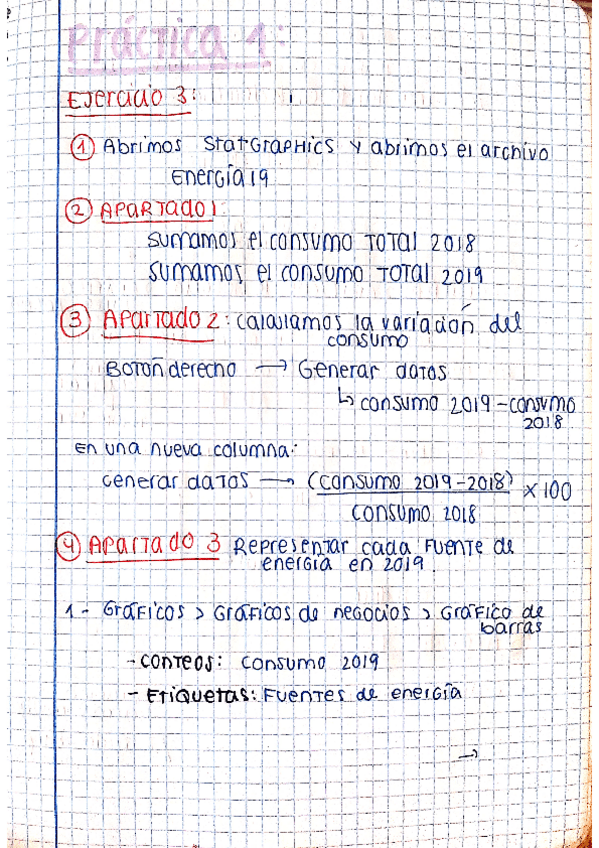 Práctica 1:
Ejercicio 3:
① Abrimos StatGraphics y abrimos el archivo
Energía19
② APARTADO 1
sumamos el consumo TOTAL 2018
sumamos el consumo TOTAL 2019
③ Apartado 2: calculamos la variación del
consumo
Botón derecho → Generar datos
↳ consumo 2019 - consumo
2018
En una nueva columna:
Generar datos → (consumo 2019-2018) x 100
consumo 2018
④ Apartado 3 Representar cada Fuente de
energía en 2019.
1- Gráficos > Gráficos de negocios > Gráfico de
barras
- conteos: consumo 2019
- Etiquetas: Fuentes de energía
→